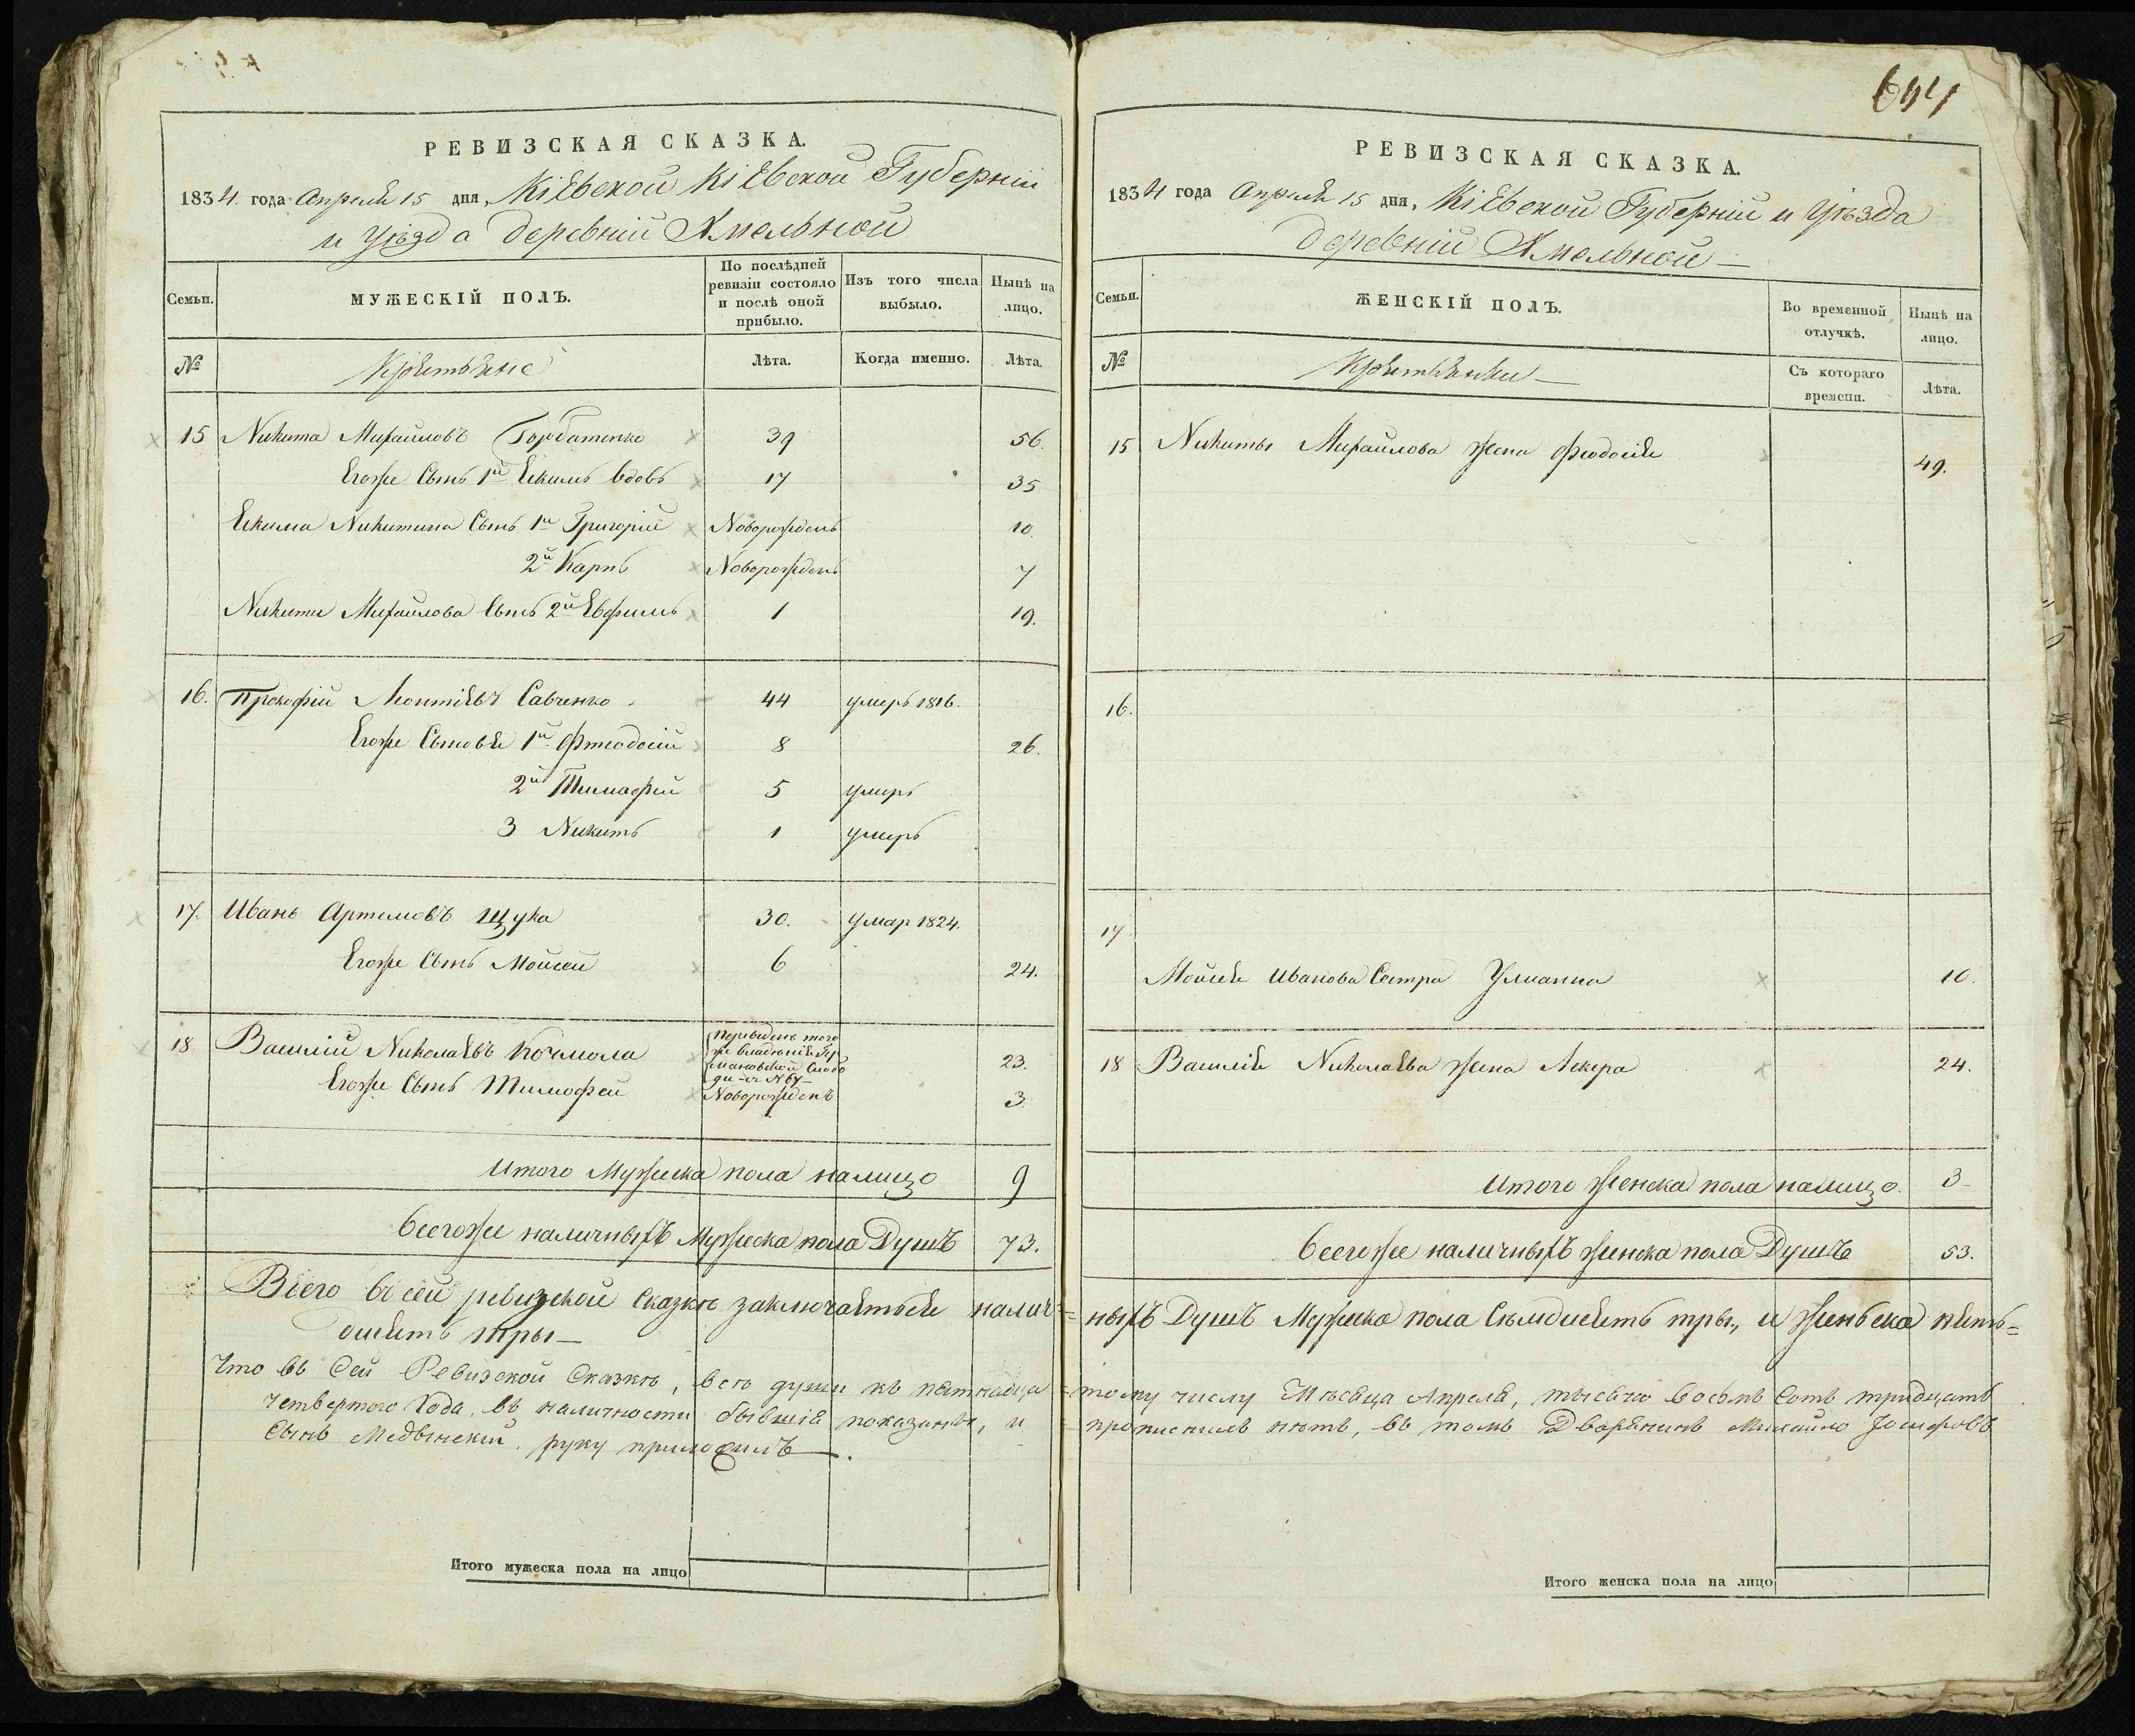 644
РЕВИЗСКАЯ СКАЗКА.
1834. года Апреля 15 дня, Кіевской Кіевской Губерніи
и Уѣзда деревніи Хмельной
Семьи. МУЖЕСКІЙ ПОЛЪ. По послѣдней ревизіи состояло и послѣ оной прибыло. Изъ того числа выбыло. Нынѣ на лицо.
№ Крестьяне Лѣта. Когда именно. Лѣта.
15 Никита Михайловъ Горбатенко 39 56.
Егоже Сынъ 1й Екимъ вдовъ 17 35
Екима Никитина Сынъ 1й Григорій Новорожденъ 10.
2й Карпъ Новорожденъ 7
Никиты Михайлова Сынъ 2й Евфимъ 1 19.
16. Прокофій Леонтіевъ Савченко 44 умеръ 1816.
Егоже Сыновья 1й Фтеодосій 8 26.
2й Тимофей 5 умеръ
3 Никитъ 1 умеръ
17. Иванъ Артемовъ Щука 30. умар 1824.
Егоже Сынъ Мойсей 6 24.
18 Василій Николаевъ Кочмола переведенъ того
же владенія Гу
мановской Слобо
ди 23.
Егоже Сынъ Тимофей Новорожденъ 3
Итого Мужеска пола налицо 9
Всегоже наличныхъ Мужеска пола Душъ 73.
РЕВИЗСКАЯ СКАЗКА.
1834 года Апреля 15 дня, Кіевской Губерніи и Уѣзда
деревніи Хмельной
Семьи. ЖЕНСКІЙ ПОЛЪ. Во временной отлучкѣ. Нынѣ на лицо.
№ Крестьянки Съ котораго времени. Лѣта.
15 Никиты Михайлова жена Феодосія 49.
16.
17
Мойсея Иванова Сестра Улианна 10.
18 Василія Николаева жена Лекера 24.
Итого женска пола налицо. 3
Всегоже наличныхъ женска пола Душъ 53.
Всего въ сей ревизской Сказкѣ заключается налич=ныхъ Душъ Мужеска пола Семдисятъ тры, и женьска пять=
дисятъ тры
Что въ Сей Ревизской Сказкѣ, всѣ души къ пятнадца=тому числу Мѣсяца Апреля, тысячо восѣмъ Сотъ тридцать
четвертого Года, въ наличности бывшія показаны, и прописнихъ нетъ, въ томъ Дворянинъ Михайло Іосифовъ
Сынъ Медвинский, руку приложилъ.
Итого мужеска пола на лицо
Итого женска пола на лицо